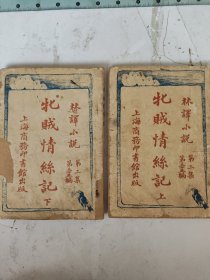 林譯小說
第二集
牝賊情絲記 上
上海商務印書館出版
林譯小說
第二集
牝賊情絲記 下
上海商務印書館出版